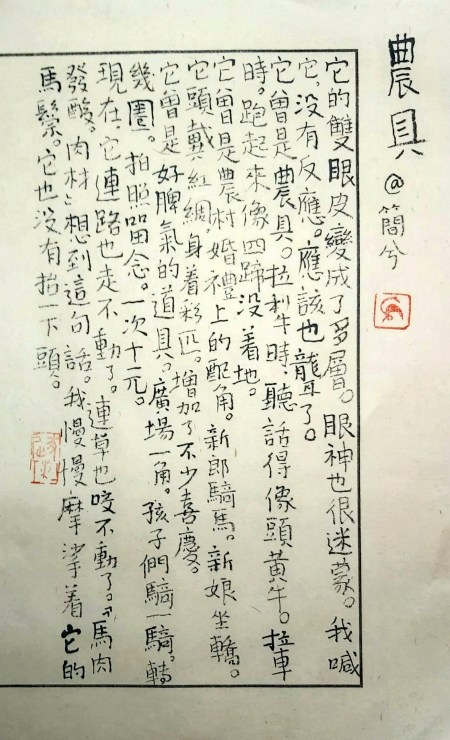 農具 @簡兮
它的雙眼皮變成了多層。眼神也很迷蒙。我喊
它,没有反應。應該也聾了。
它曾是農具。拉犁時,聽話得像頭黃牛。拉車
時。跑起來像四蹄没着地。
它曾是農村婚禮上的配角。新郎騎馬。新娘坐轎。
它頭戴紅綢。身着彩匹。增加了不少喜慶。
它曾是好脾氣的道具。廣場一角。孩子們騎一騎。轉
幾圈。拍照留念。一次十元。
現在,它連路也走不動了。連草也咬不動了。「馬肉
發酸。肉材」想到這句話。我慢慢摩挲着它的
馬鬃。它也没有抬一下頭。